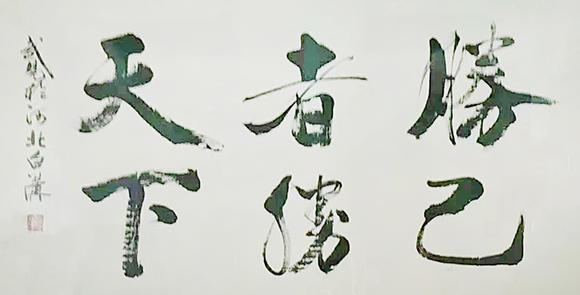 勝己
者勝
天下
河北白洋